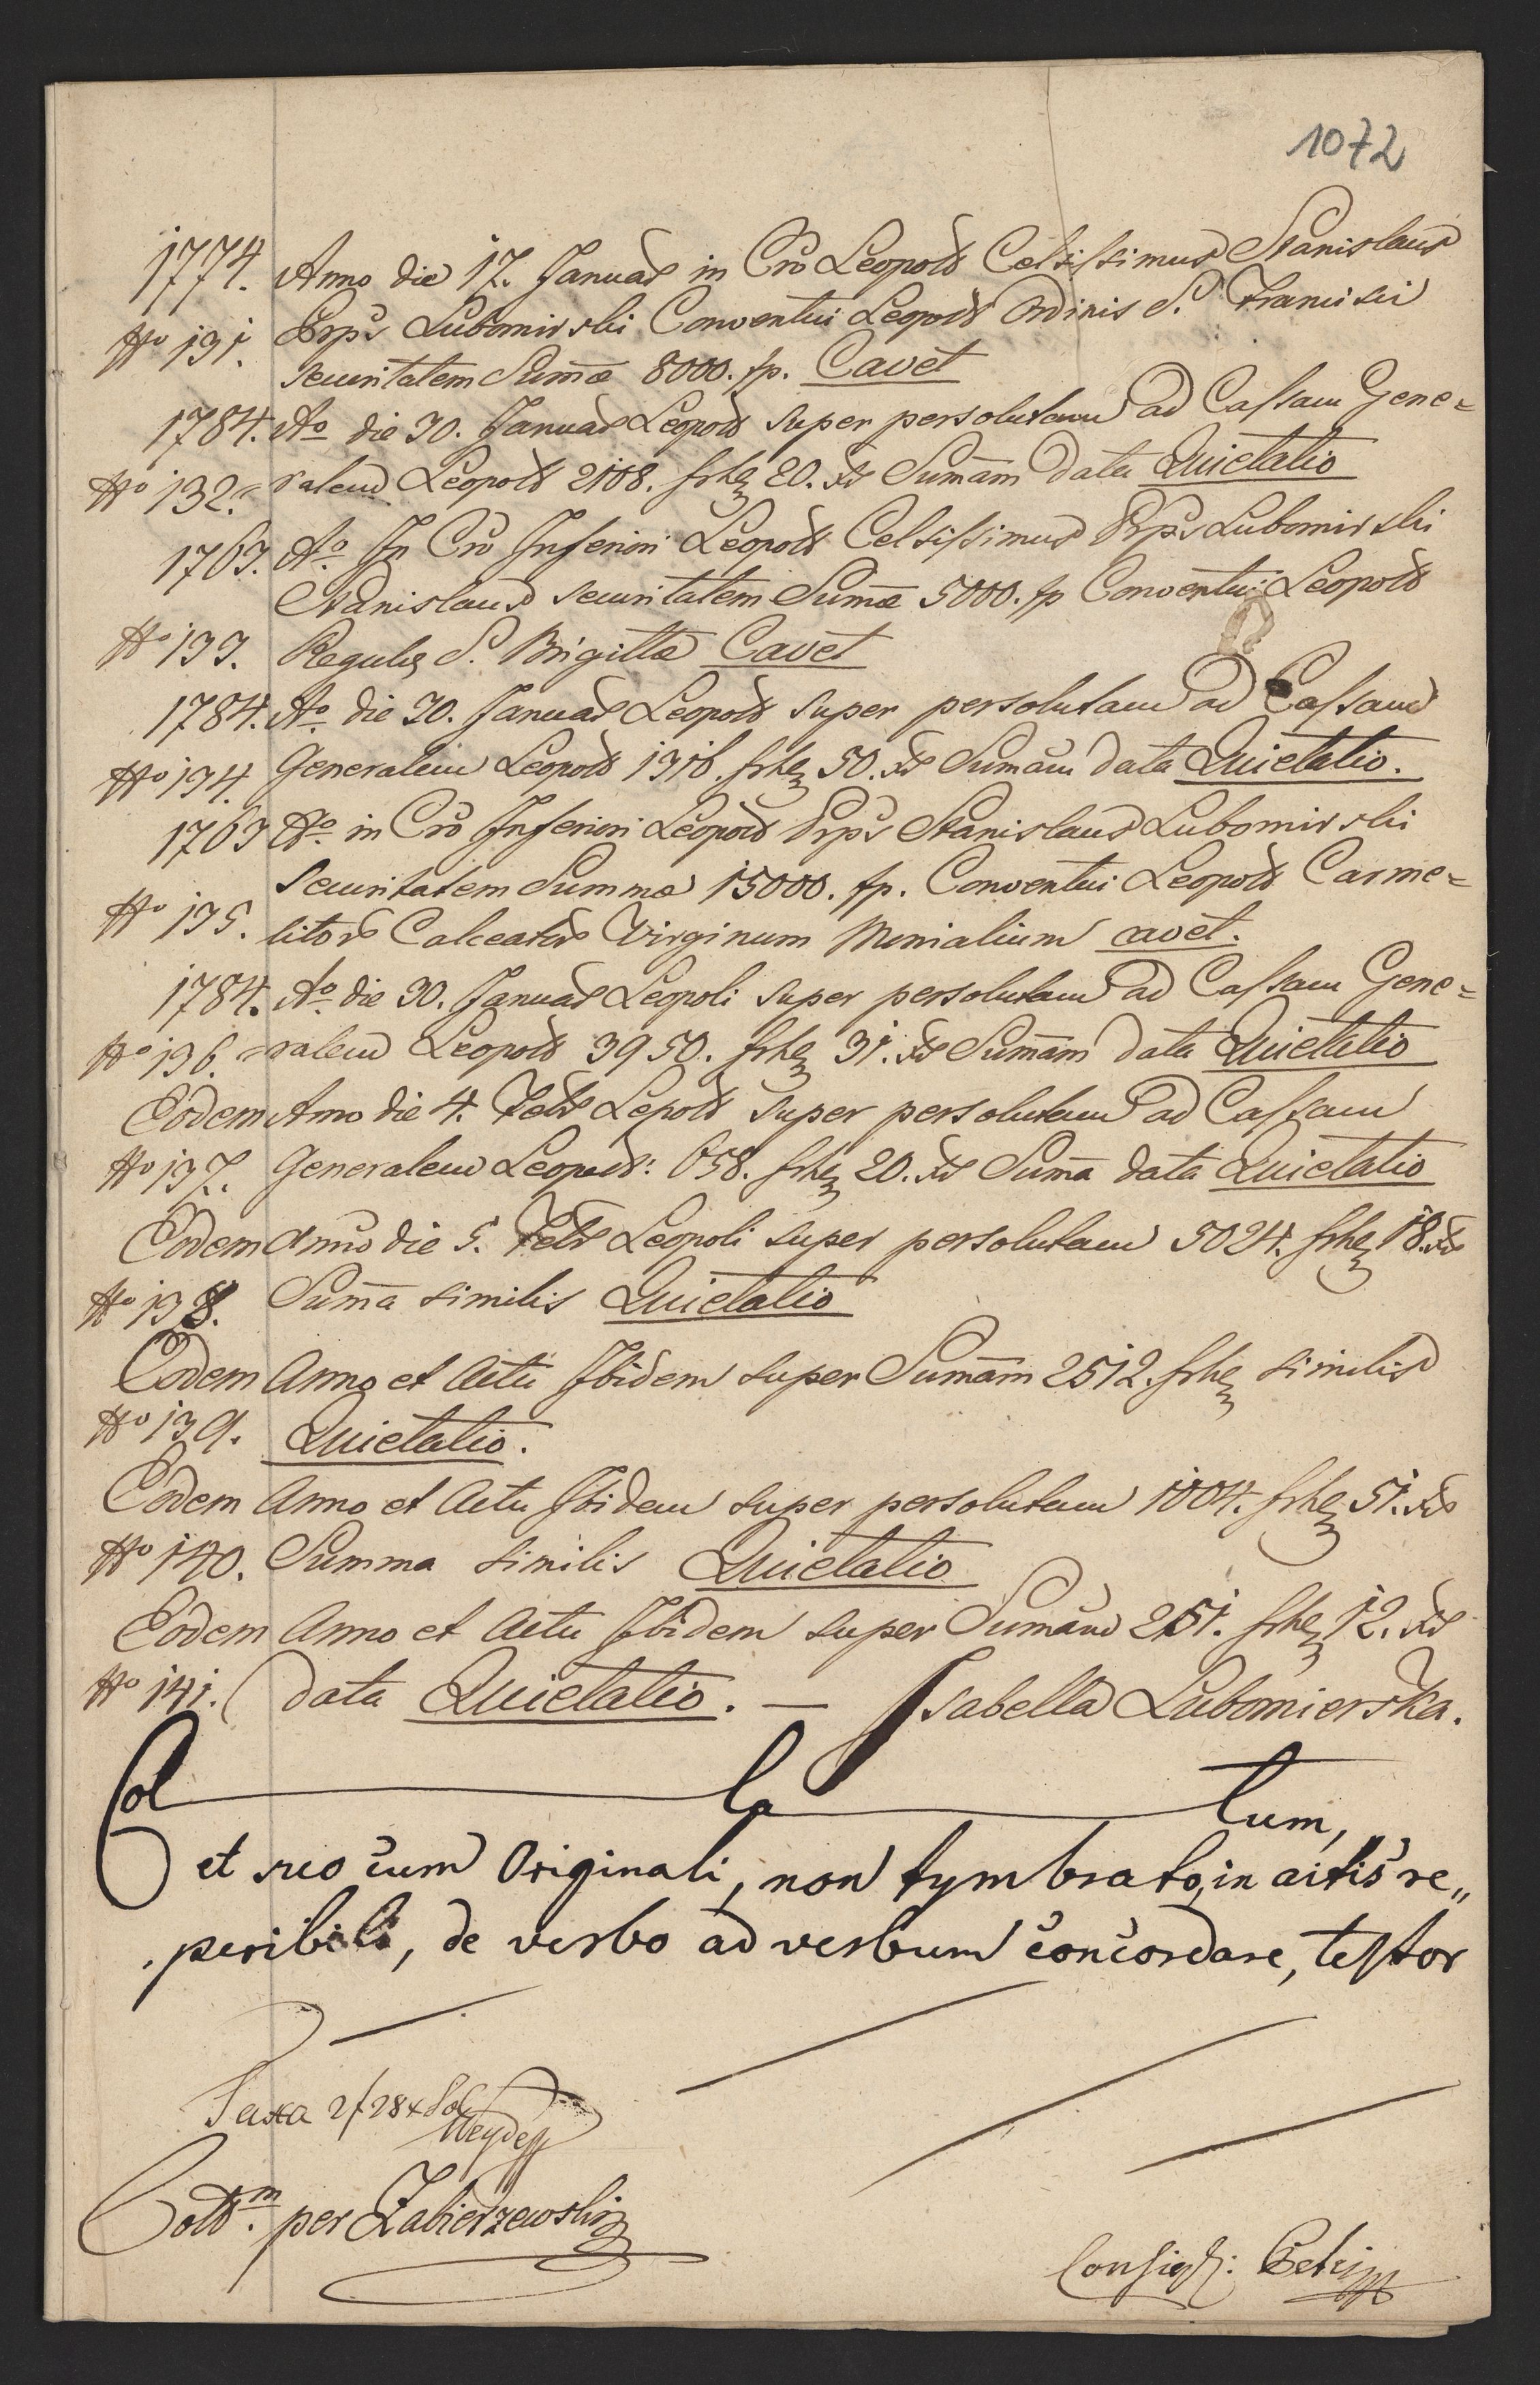 1072
1774. Anno die 17. Januar in Cro Leopold Celsissimus Stanislaus
No 131. Prps Lubomirski Conventui Leopold Ordinis S. Francisci
securitatem Sumæ 8000. fp. Cavet
1784. Ao die 30. Januar Leopold super persolutam ad Cassam Gene=
No 132. ralem Leopold 2108. frh 20. xr Sumam data Quietatio
1763. Ao In Cro Inferiori Leopold Celsissimus Prps Lubomirski
Stanislaus securitatem Sumæ 5000. fp Conventui Leopold
No 133. Regulæ S. Brigittæ Cavet
1784. Ao die 30. Januar Leopold super persolutam ad Cassam
No 134. Generalem Leopold 1316. frh 50. xr Sumam data Quietatio.
1763 Ao in Cro Inferiori Leopold Prps Stanislaus Lubomirski
securitatem Summæ 15000. fp. Conventui Leopold Carme=
No 135. litor Calceatar Virginum Monialium cavet.
1784. Ao die 30. Januar Leopoli super persolutam ad Cassam Gene=
No 136. ralem Leopold 3950. frh 31. xr Sumam data Quietatio
Eodem Anno die 4. Febr Lepold super persolutam ad Cassam
No 137. Generalem Leopold: 658. frh 20. xr Suma data Quietatio
Eodem anno die 5. Febr Leopoli super persolutam 5024. frh 18. xr
No 138. Suma similis Quietatio
Eodem Anno et Actu Ibidem super Sumam 2512. frh similis
No 139. Quietatio.
Eodem Anno et Actu Ibidem super persolutam 1004. frh 51. xr
No 140. Summa similis Quietatio
Eodem Anno et Actu Ibidem super Sumam 251. frh 12. xr
No 141. data Quietatio. — Isabella Lubomierska.
Col la tum,
et suo cum Originali, non tymbrato, in actis re„
peribili, de verbo ad verbum concordare, testor
Taxa 2f 28x
Coll.m per Zabierzewski